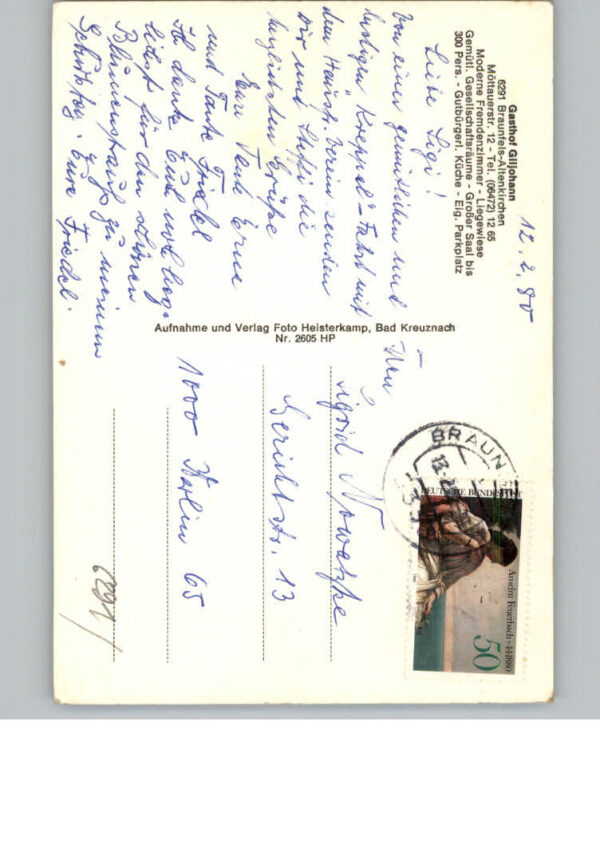 Gasthof Giljohann
6291 Braunfels-Altenkirchen
Möttauerstr. 12 - Tel. (06472) 12 65
Moderne Fremdenzimmer - Liegewiese
Gemütl. Gesellschaftsräume - Großer Saal bis
300 Pers. - Gutbürgerl. Küche - Eig. Parkplatz
12. 2. 80
Liebe Sigi!
Von einer gemütlichen und
lustigen "Kreppel"-Fahrt mit
dem Verein senden
wir und die
herzlichsten Grüße
Eure Erne
und Tante Friedel
Ich danke Euch
für den schönen
Blumenstrauß zu meinem
Eure Friedel.
Aufnahme und Verlag Foto Heisterkamp, Bad Kreuznach
Nr. 2605 HP
Sigrid
Gerichtstr. 13
1000 Berlin 65
BRAUN
DEUTSCHE BUNDESPOST
Anselm Feuerbach
50